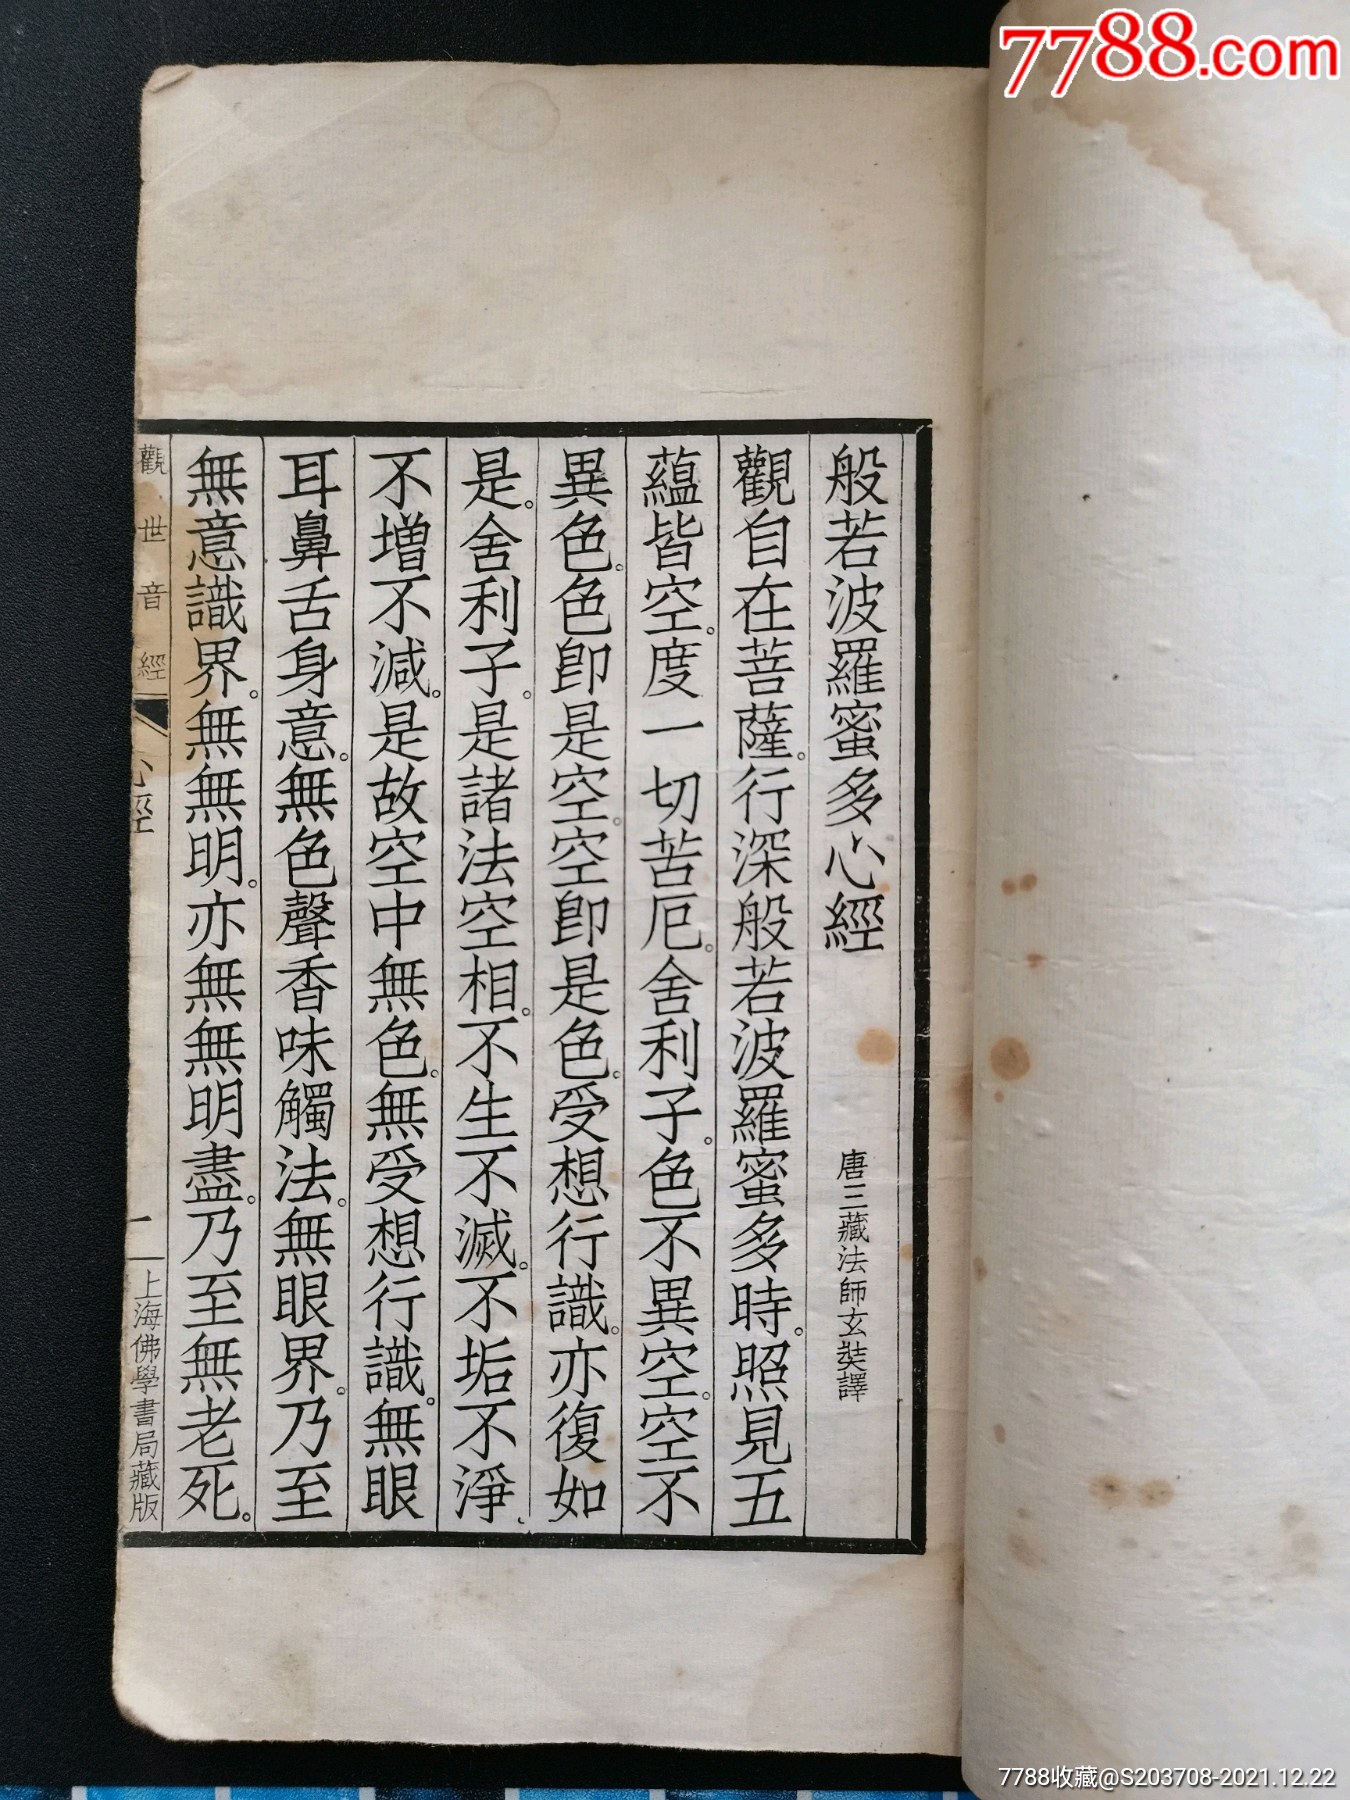 7788.com
般若波羅蜜多心經
唐三藏法師玄奘譯
觀自在菩薩。行深般若波羅蜜多時。照見五
蘊皆空。度一切苦厄。舍利子。色不異空。空不
異色。色即是空。空即是色。受想行識。亦復如
是。舍利子。是諸法空相。不生不滅。不垢不淨。
不增不減。是故空中無色。無受想行識。無眼
耳鼻舌身意。無色聲香味觸法。無眼界。乃至
無意識界。無無明。亦無無明盡。乃至無老死。
觀世音經
心經
一
上海佛學書局藏版
7788收藏@S203708-2021.12.22